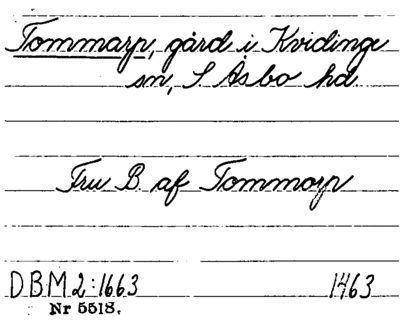 Tommarp, gård i Kvidinge
sn, S. Åsbo hd
Fru B. af Tommorp
DBM 2:1663 1463
Nr 5518.